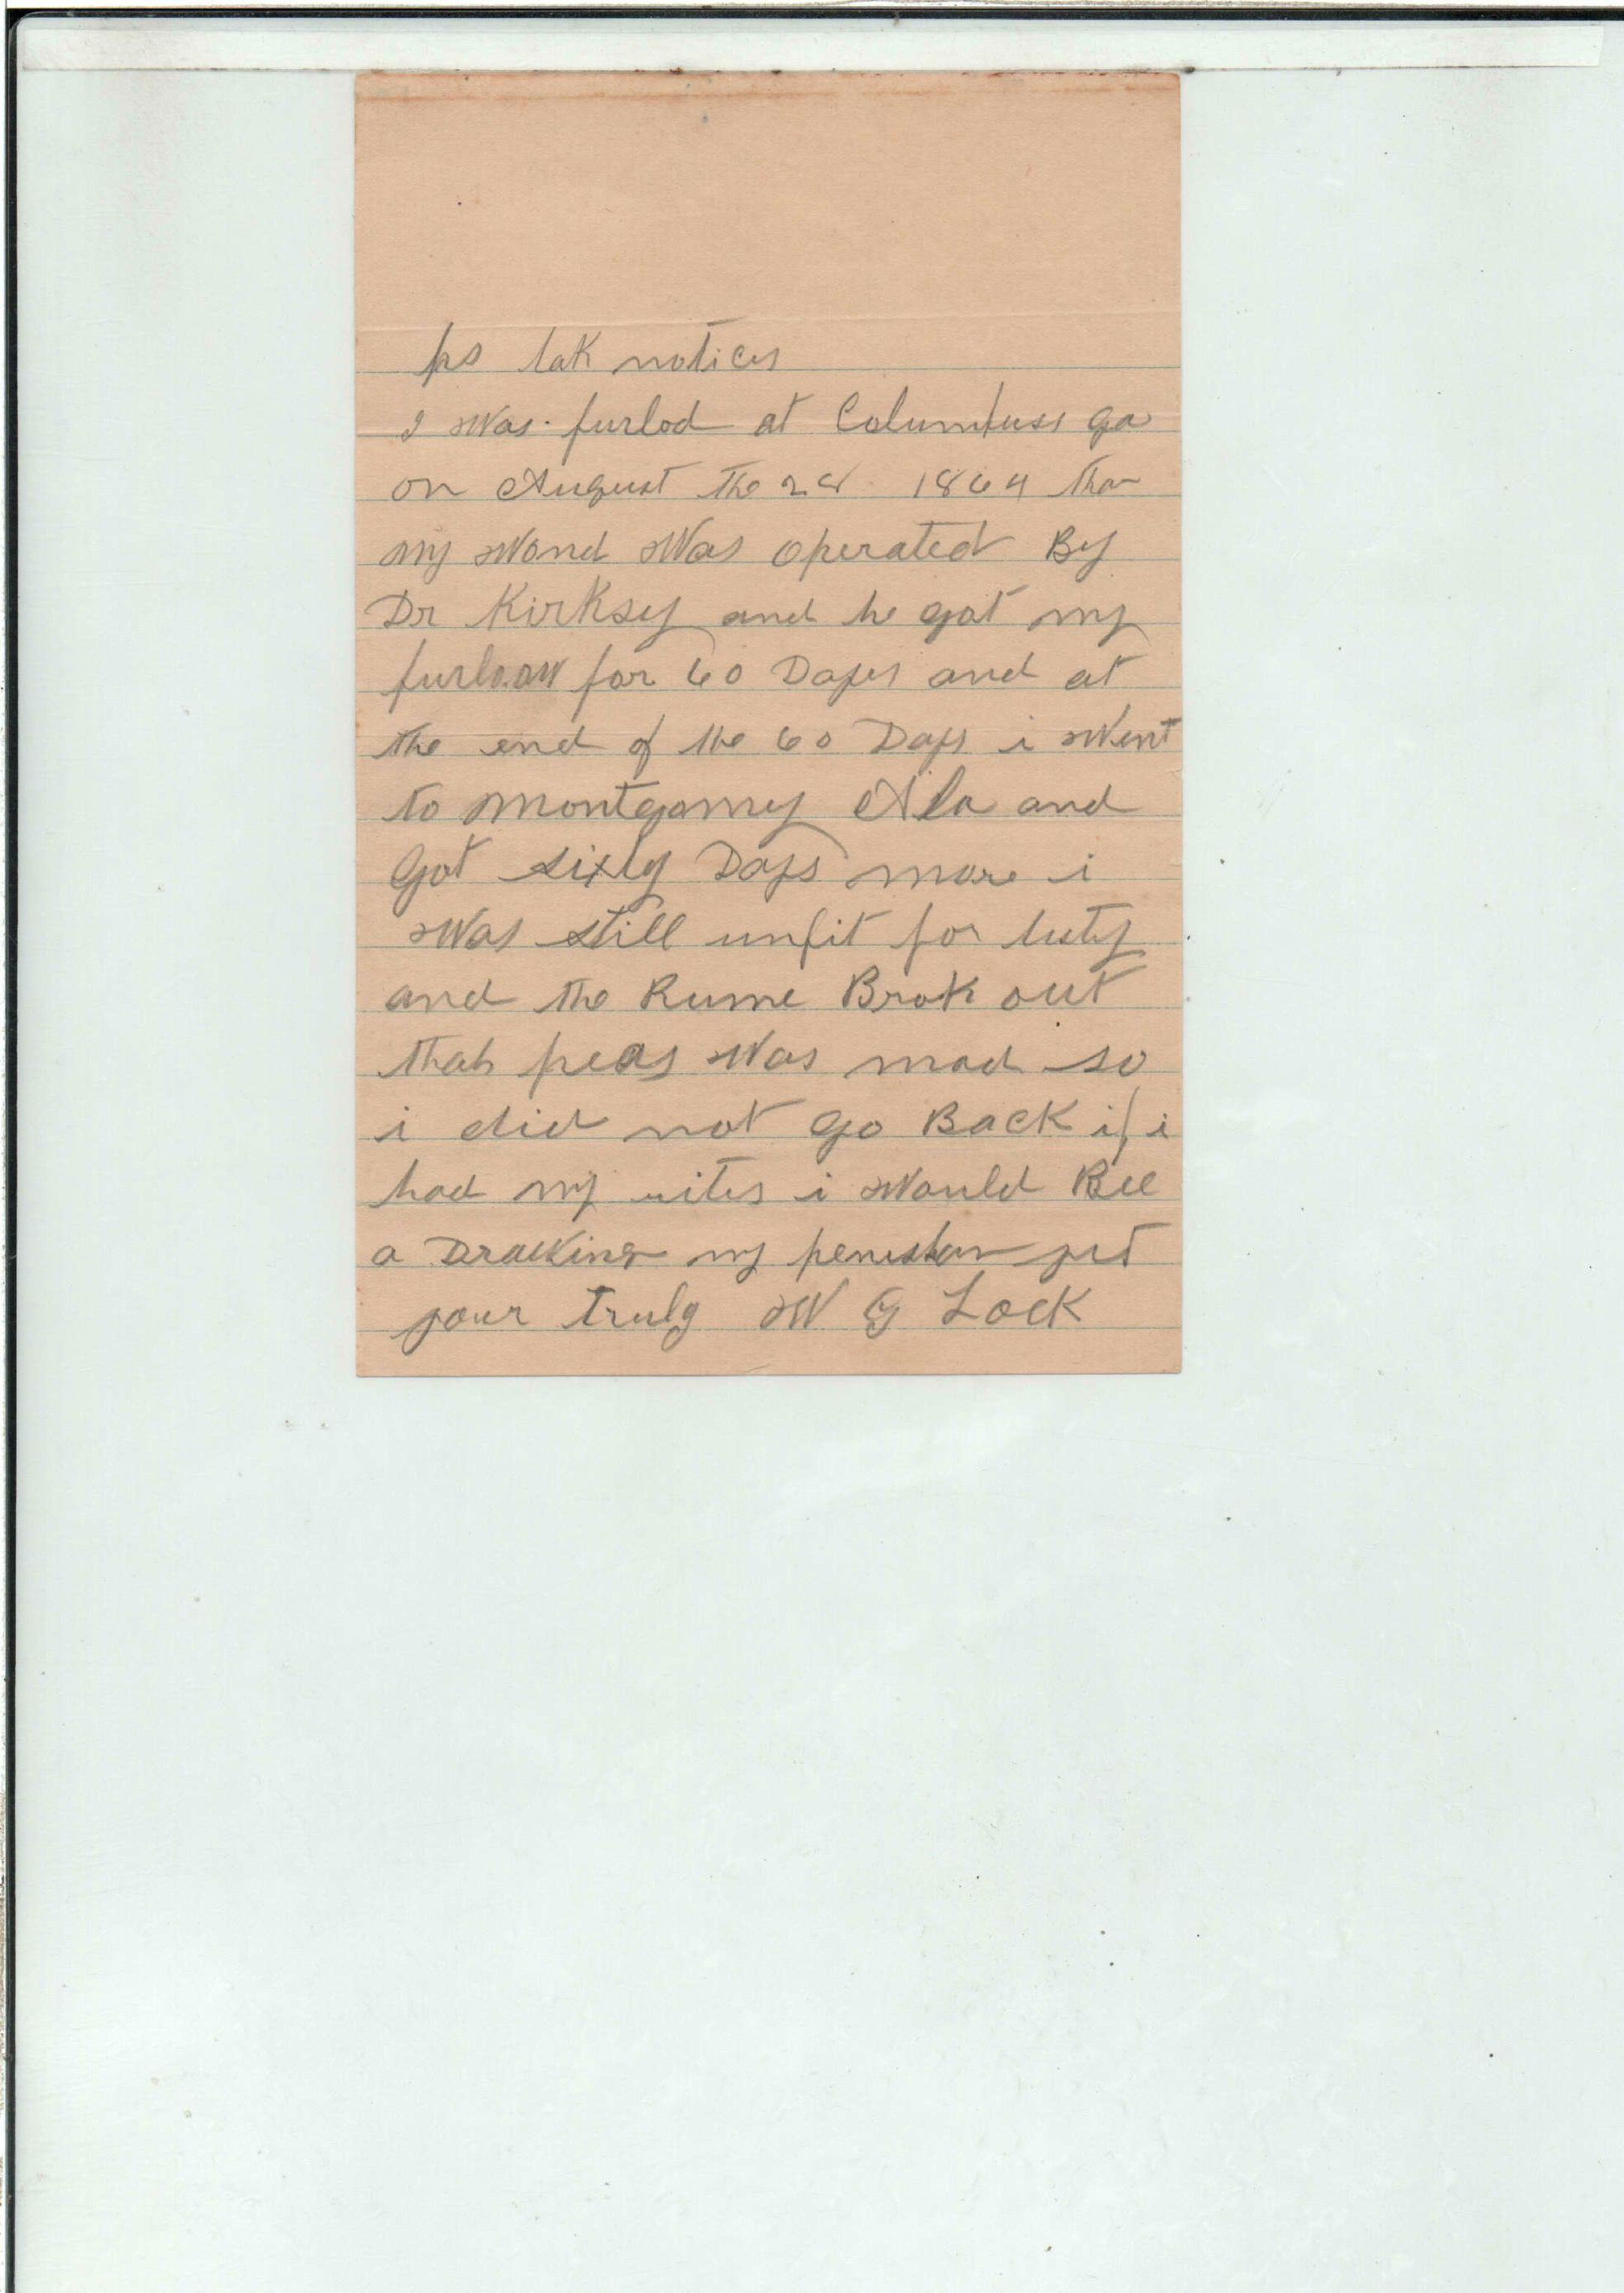 ps tak notices
I was furlod at Columbuss ga
on August the 28 1864 than
my wond was operated By
Dr Kirksey and he got my
furlow for 60 Days and at
the end of the 60 Days i went
to montgomry Ala and
Got sixty Days more i
was still unfit for duty
and the Rume Brok out
that peas was mad so
i did not go Back if i
had my rites i would Bee
a Drawing my penshon yet
your truly W G Lock